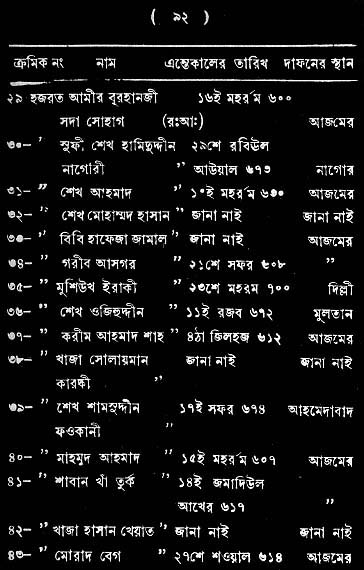 ( ৯২ )
ক্রমিক নং নাম এন্তেকালের তারিখ দাফনের স্থান
২৯ হজরত আমীর বুরহানজী ১৬ই মহর্রম ৬০০
সদা সোহাগ (রঃআঃ) আজমের
৩০- " সুফী শেখ হামিদুদ্দীন ২৯শে রবিউল
নাগোরী " আউয়াল ৬৭৩ নাগোর
৩১- " শেখ আহমাদ " ১০ই মহর্রম ৬০০ আজমের
৩২- " শেখ মোহাম্মদ হাসান " জানা নাই জানা নাই
৩৩- " বিবি হাফেজা জামাল " জানা নাই আজমের
৩৪- " গরীব আসগর " ২১শে সফর ৬০৮ "
৩৫- " মুশিউখ ইরাকী " ২৩শে মহরম ৭০০ দিল্লী
৩৬- " শেখ ওজিহুদ্দীন " ১১ই রজব ৬৭২ মুলতান
৩৭- " করীম আহমাদ শাহ " ৪ঠা জিলহজ ৬১২ আজমের
৩৮- " খাজা সোলায়মান জানা নাই জানা নাই
কারকী "
৩৯- " শেখ শামসুদ্দীন ১৭ই সফর ৬৭৪ আহমেদাবাদ
ফওকানী "
৪০- " মাহমুদ আহমাদ " ১৫ই মহর্রম ৬০৭ আজমের
৪১- " শাবান খাঁ তুর্ক " ১৪ই জমাদিউল
আখের ৬১৭ "
৪২- " খাজা হাসান খেয়াত " জানা নাই জানা নাই
৪৩- " মোরাদ বেগ " ২৭শে শওয়াল ৬১৪ আজমের